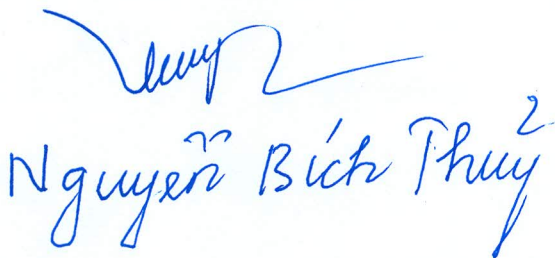 Nguyễn Bích Thuỷ